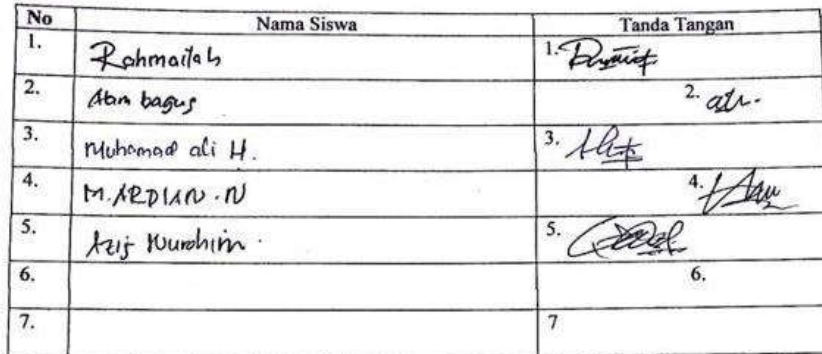 No Nama Siswa Tanda Tangan
1. Rahmailah 1.
2. Abm bagus 2.
3. Muhamad ali H. 3.
4. M. ARDIAN . N 4.
5. Aziz Nurohim 5.
6. 6.
7. 7